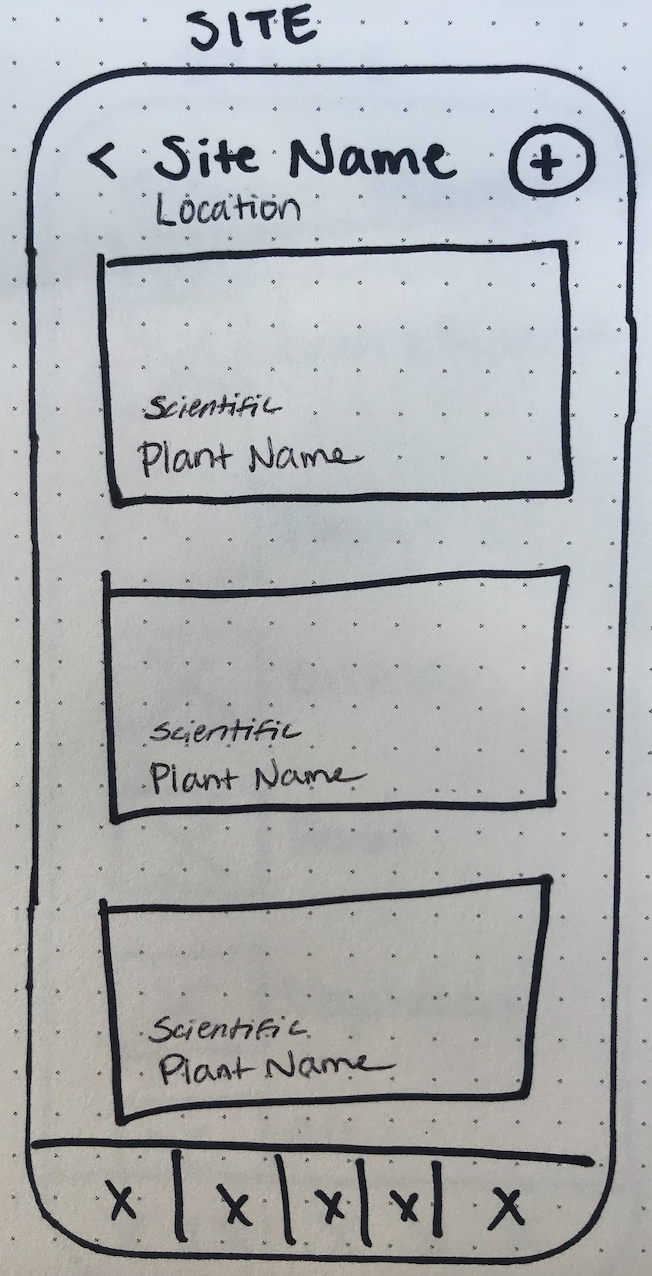 SITE
< Site Name +
Location
Scientific
Plant Name
Scientific
Plant Name
Scientific
Plant Name
X X X X X